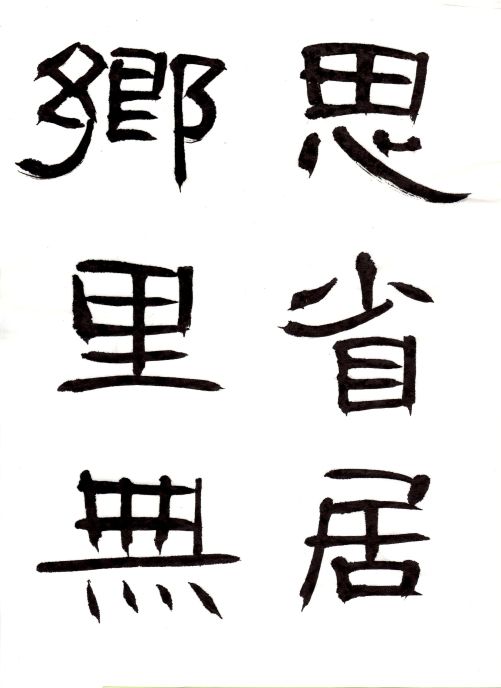 思省居
鄉里無